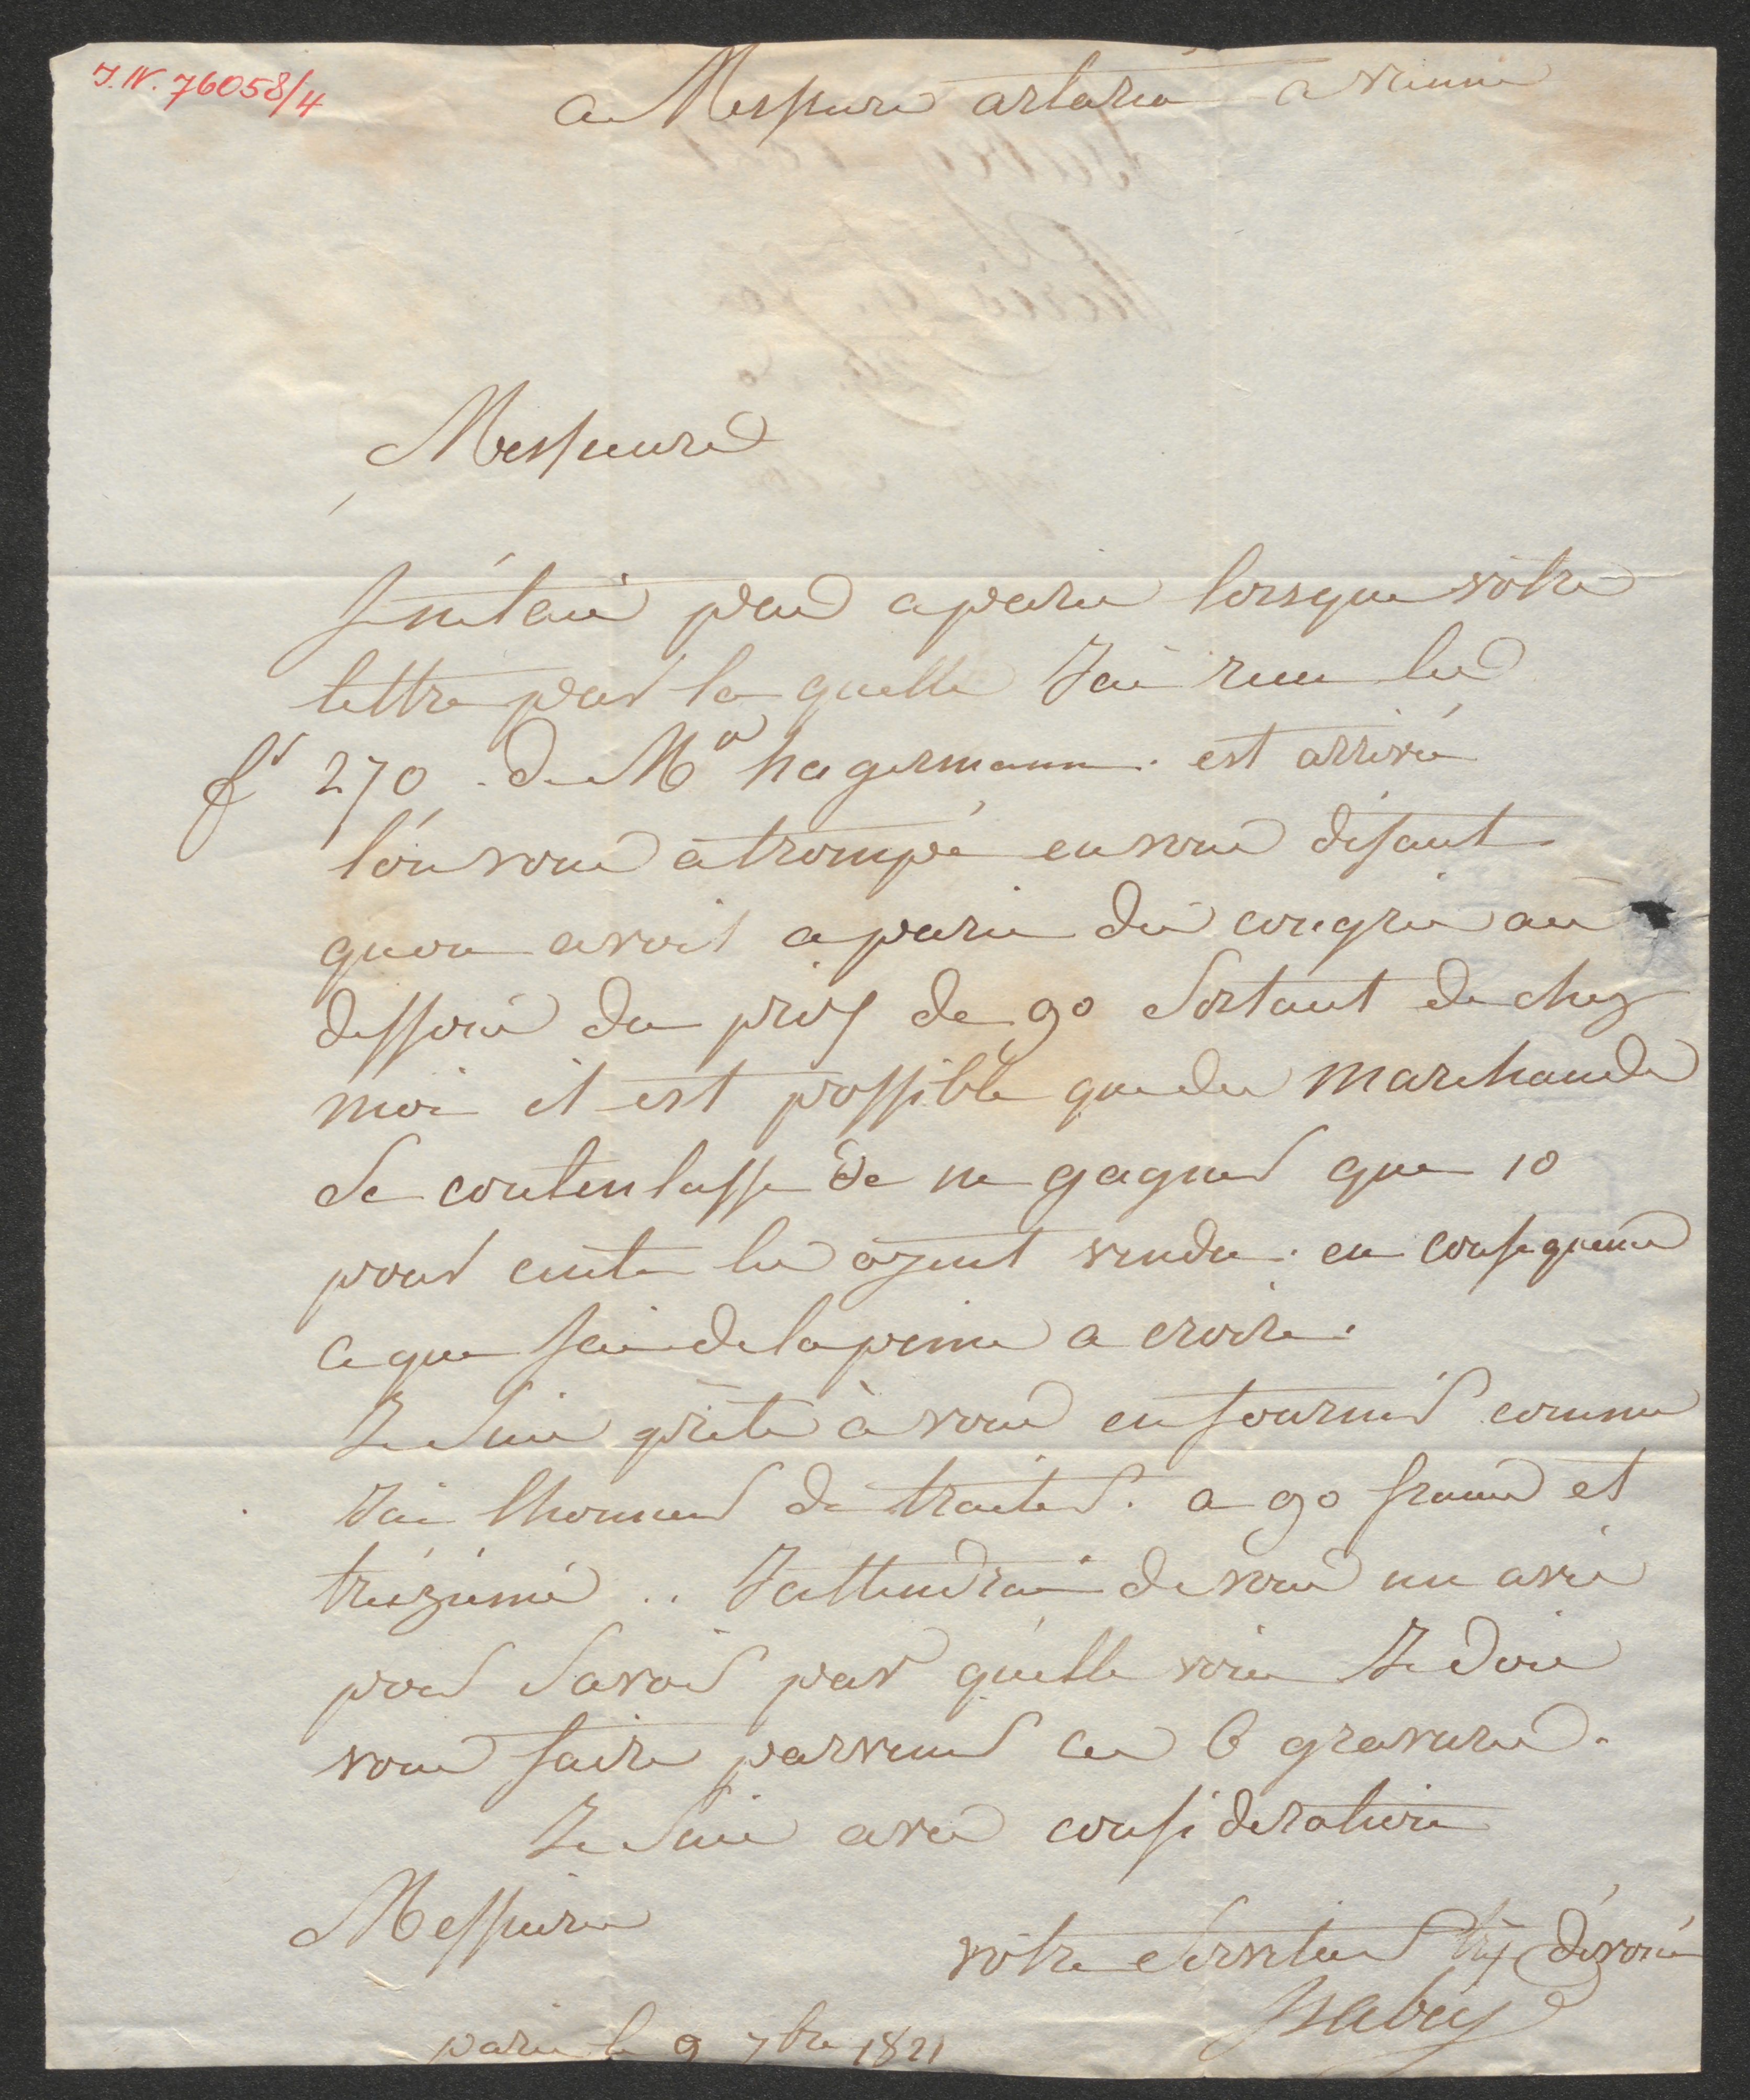 J.N. 76058/4
a Messieurs artaria a vienne
Messieurs
Je n'étais pas a paris lorsque vôtre
lettre par la quelle J'ai recu les
fs 270 . de Mr hagermann . est arrivé
l'on vous a trompé en vous disant
quon avoit a paris du congrès au
dessous du prix de 90 sortant de chez
moi il est possible que des marchands
se contentasse de ne gagner que 10
pour cente les ayent vendu . en consequence
ce que J'ai de la peine a croire .
Je suis prête à vous en fournir comme
J'ai lhonneur de traiter . a 90 francs et
treizième .. J'attendrai de vous un avis
pour savoir par quelle voie Je dois
vous faire parvenir ces 6 gravures .
Je suis avec consideration
Messieurs
vôtre serviteur très dévoué
Isabey
paris le 9 7bre 1821